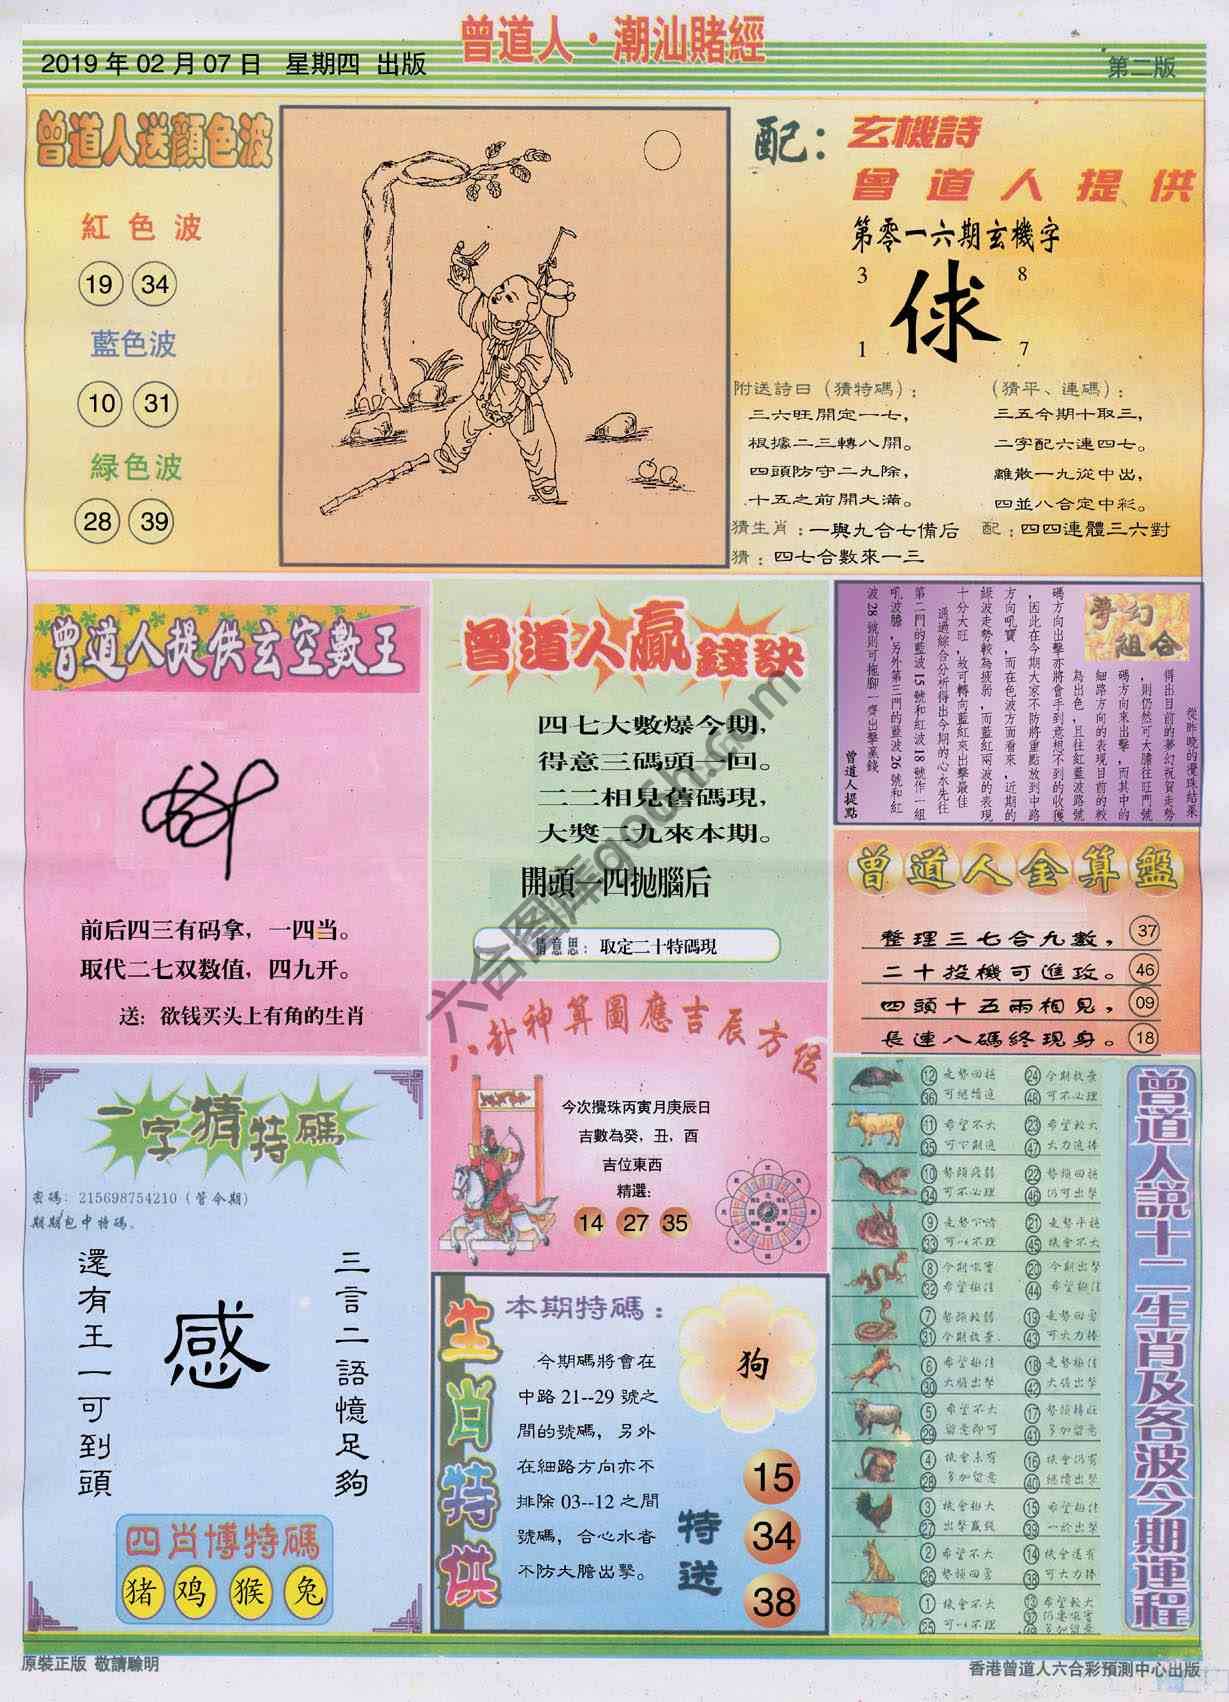 曾道人·潮汕賭經
2019年02月07日 星期四 出版
第二版
曾道人送顏色波
紅色波
19 34
藍色波
10 31
緑色波
28 39
配：
玄機詩
曾道人提供
第零一六期玄機字
3 8
俅
1 7
附送詩曰（猜特碼）：
三六旺開定一七，
根據二三轉八開。
四頭防守二九除，
十五之前開大滿。
（猜平、連碼）：
三五今期十取三，
二字配六連四七。
離散一九從中出，
四並八合定中彩。
猜生肖：一與九合七備后
配：四四連體三六對
猜：四七合數來一三
曾道人提供玄空數王
前后四三有码拿，一四当。
取代二七双数值，四九开。
送：欲钱买头上有角的生肖
曾道人贏錢訣
四七大數爆今期，
得意三碼頭一回。
二二相見舊碼現，
大獎一九來本期。
開頭一四拋腦后
猜意思：取定二十特碼現
夢幻組合
從昨晚的攪珠結果
得出目前的夢幻祝賀走勢
，則仍然可大膽往旺門號
碼方向來出擊，而其中的
細路方向的表現目前的較
為出色，且往紅藍波路號
碼方向出擊亦將會手到意想不到的收獲
，因此在今期大家不防將重點放到中路
方向吼寶，而在色波方面看來，近期的
綠波走勢較為疲弱，而藍紅兩波的表現
十分大旺，故可轉向藍紅來出擊最佳
通過綜合分析得出今期的心水先往
第二門的藍波15號和紅波18號作一組
吼波膽，另外第三門的藍波26號和紅
波28號則可拖腳一齊出擊裏錢
曾道人提點
曾道人金算盤
整理三七合九數， 37
二十投機可進攻。 46
四頭十五兩相見， 09
長連八碼終現身。 18
八卦神算圖應吉辰方位
今次攪珠丙寅月庚辰日
吉數為癸，丑，酉
吉位東西
精選:
14 27 35
一字猜特碼
密碼：215698754210（管今期）
期期包中特碼。
三言二語憶足夠
感
還有王一可到頭
四肖博特碼
猪 鸡 猴 兔
生肖特供
本期特碼：
今期碼將會在
中路21--29號之
間的號碼，另外
在細路方向亦不
排除03--12之間
號碼，合心水者
不防大膽出擊。
狗
特送
15
34
38
曾道人說十二生肖及各波今期運程
12 走勢回穩 24 今期放棄
36 可繼續追 48 可不必理
11 希望不大 23 希望較大
35 可下期追 47 大力追捧
10 勢頭疲弱 22 勢頭回穩
34 可不必理 46 仍可出擊
9 走勢下滑 21 走勢平穩
33 可以不理 45 機會不大
8 今期吼寶 20 今期出擊
32 希望極佳 44 希望極佳
7 勢頭較弱 19 勢頭回勇
31 今期放棄 43 可大力捧
6 希望極佳 18 走勢極佳
30 大膽出擊 42 大膽出擊
5 希望不大 17 勢頭轉旺
29 留意即可 41 多加留意
4 機會未有 16 機會仍有
28 多加留意 40 繼續出擊
3 機會極大 15 希望極佳
27 出擊贏錢 39 一於出擊
2 希望不大 14 機會還有
26 勢頭回勇 38 可大力捧
1 機會不大 13 希望較大
25 可以不理 37 仍要吼寶
49 多加留意
原裝正版 敬請驗明
香港曾道人六合彩預測中心出版
六合图库gooh.com